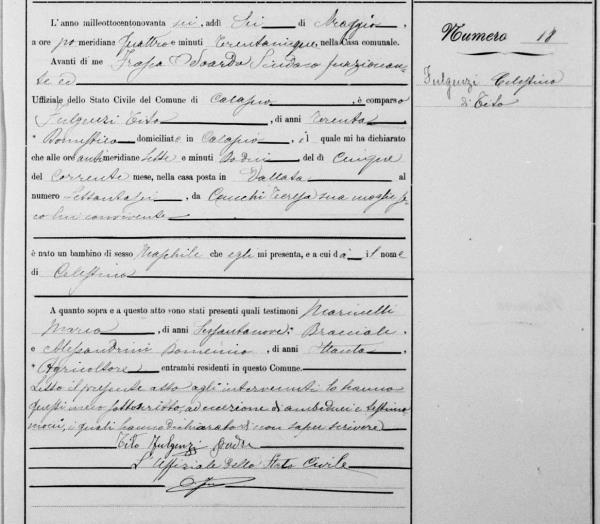 L'anno millottocentonovanta sei, addì Sei di Maggio
a ore po meridiane Quattro e minuti Trentacinque, nella Casa comunale.
Avanti di me Edoardo Sindaco funzionan-
te ed
Uffiziale dello Stato Civile del Comune di Calascio, è comparso
Fulgenzi Tito, di anni Trenta
domiciliato in Calascio, il quale mi ha dichiarato
che alle ore antimeridiane Sette e minuti Dodici del dì Cinque
del Corrente mese, nella casa posta in Vallata al
numero, da Teresa sua moglie se-
co lui convivente
è nato un bambino di sesso Maschile che egli mi presenta, e a cui dà il nome
di Celestino
A quanto sopra e a questo atto sono stati presenti quali testimoni Marinelli
Mario, di anni Sessantanove, Bracciale,
e Alessandrini Domenico, di anni
Agricoltore entrambi residenti in questo Comune.
Letto il presente atto agli intervenuti lo hanno
questi meco sottoscritto, ad eccezione di ambedue i testimo
moni, i quali hanno dichiarato di non saper scrivere
Tito Fulgenzi
L'Uffiziale dello Stato Civile
Numero 18
Fulgenzi Celestino
di Tito